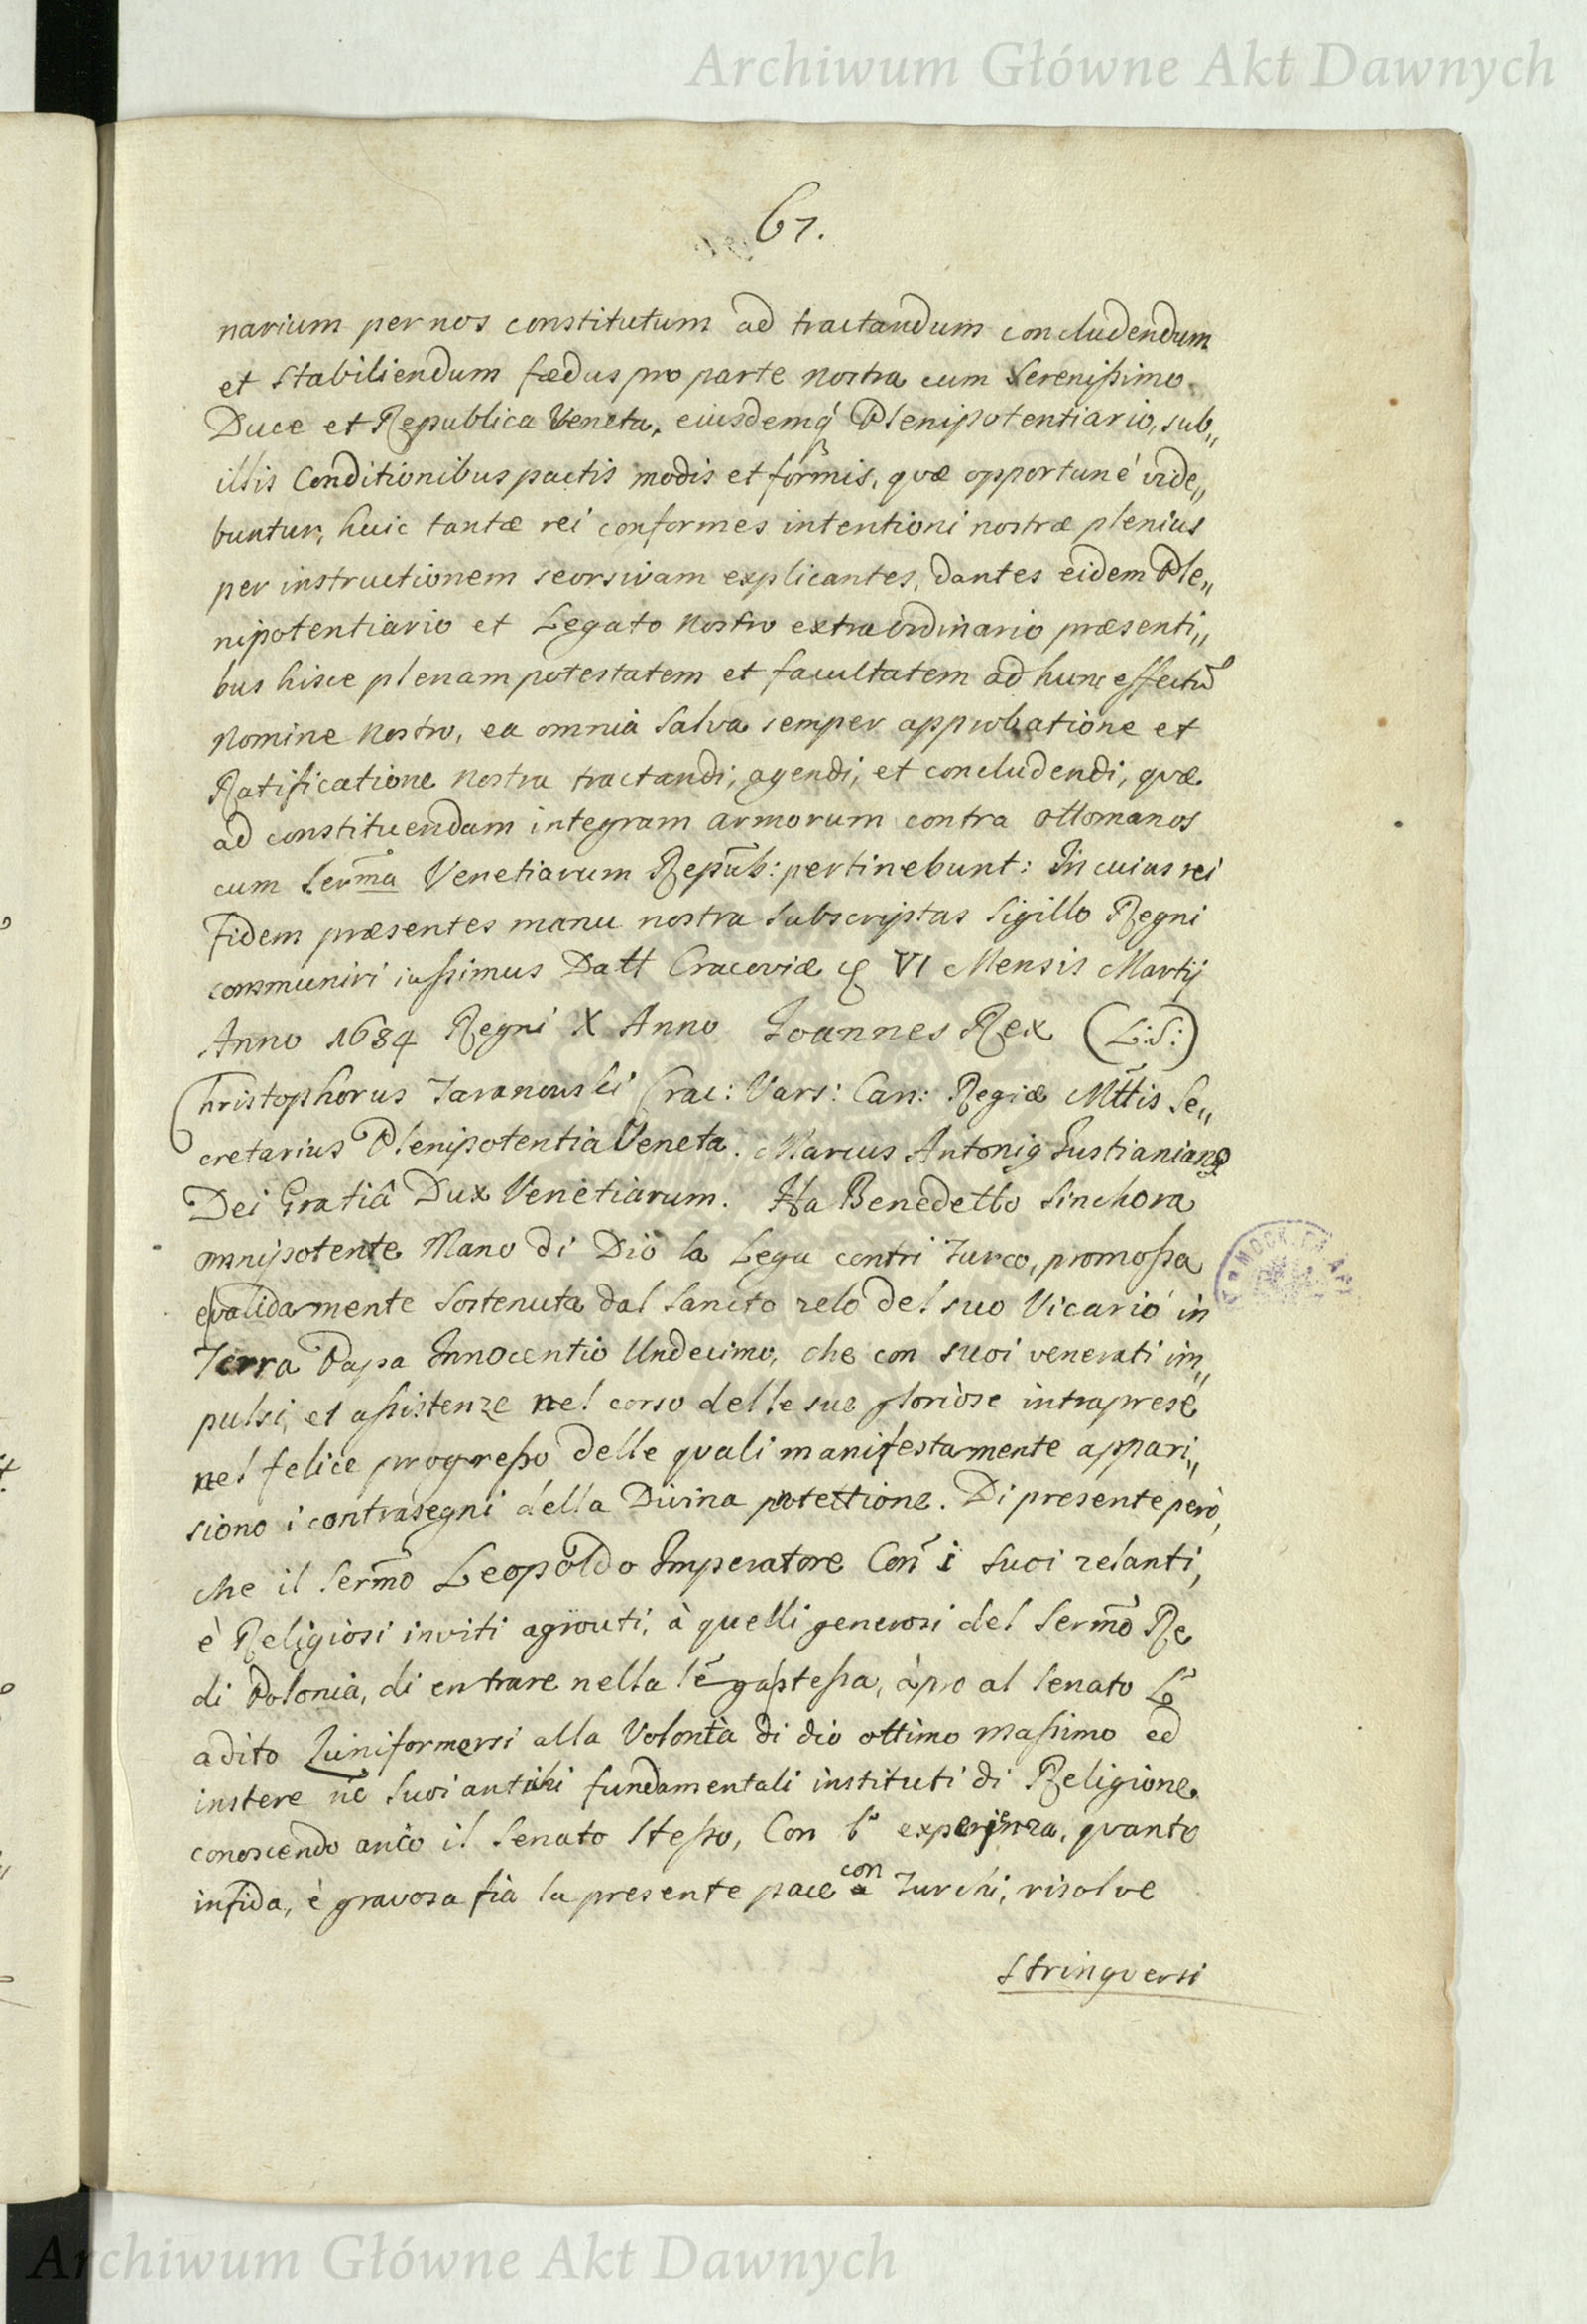 Archiwum Główne Akt Dawnych
67.
narium per nos constitutum ad tractandum concludendum
et stabiliendum fœdus pro parte nostra cum Serenissimo
Duce et Republica Veneta, eiusdemq́ Plenipotentiario, sub„
illis Conditionibus pactis modis et formis, quæ opportuné vide„
buntur, huic tantæ rei conformes intentioni nostræ plenius
per instructionem seorsivam explicantes, dantes eidem Ple„
nipotentiario et Legato Nostro extraordinario præsenti„
bus hisce plenam potestatem et facultatem ad hunc effectũ
Nomine Nostro, ea omnia salva semper approbatione et
Ratificatione nostra tractandi, agendi, et concludendi, quæ
ad constituendam integram armorum contra Ottomanos
cum Serm̃a Venetiarum Repub̃: pertinebunt: In cuius rei
Fidem præsentes manu nostra subscriptas Sigillo Regni
communiri iussimus Datt Cracoviæ VI Mensis Martij
Anno 1684 Regni X Anno Joannes Rex (L:S:)
Christophorus Taranouski Crac: Vars: Can: Regiæ Mttis Se„
cretarius Plenipotentia Veneta. Marcus Antonig Justianiang
Dei Gratiâ Dux Venetiarum. Ha Benedetto Sinchora
omnipotente Mano di Dio la Lega contri Turco, promossa
e validamente sostenuta dal Sancto zelo del suo Vicario in
Terra Papa Innocentio Undecimo, che con suoi venerati im„
pulsi, et assistenze nel corso delle sue gloriose intraprese
nel felice progresso delle quali manifestamente appari„
siono i contrasegni della Divina protettione. Di presente però,
che il Serm̃o Leopoldo Imperatore Con i suoi zelanti,
è Religiosi inviti agiouti, à quelli generosi del Serm̃o Re
di Polonia, di entrare nella lega stessa, àpro al Senato
adito Luniformersi alla Volontà di dio ottimo Massimo ed
instere ne suoi antichi fundamentali instituti di Religione
conoscendo anco il Senato Stesso, Con experienza, quanto
infida, è gravosa sia la presente pace con Turchi, risolve
Stringuersi
Archiwum Główne Akt Dawnych